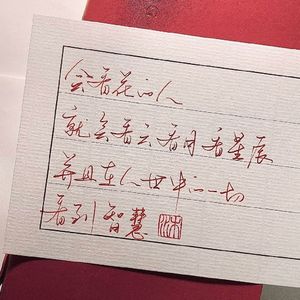 会看花的人
就会看云看月看星辰
并且在人世中的一切
看到智慧